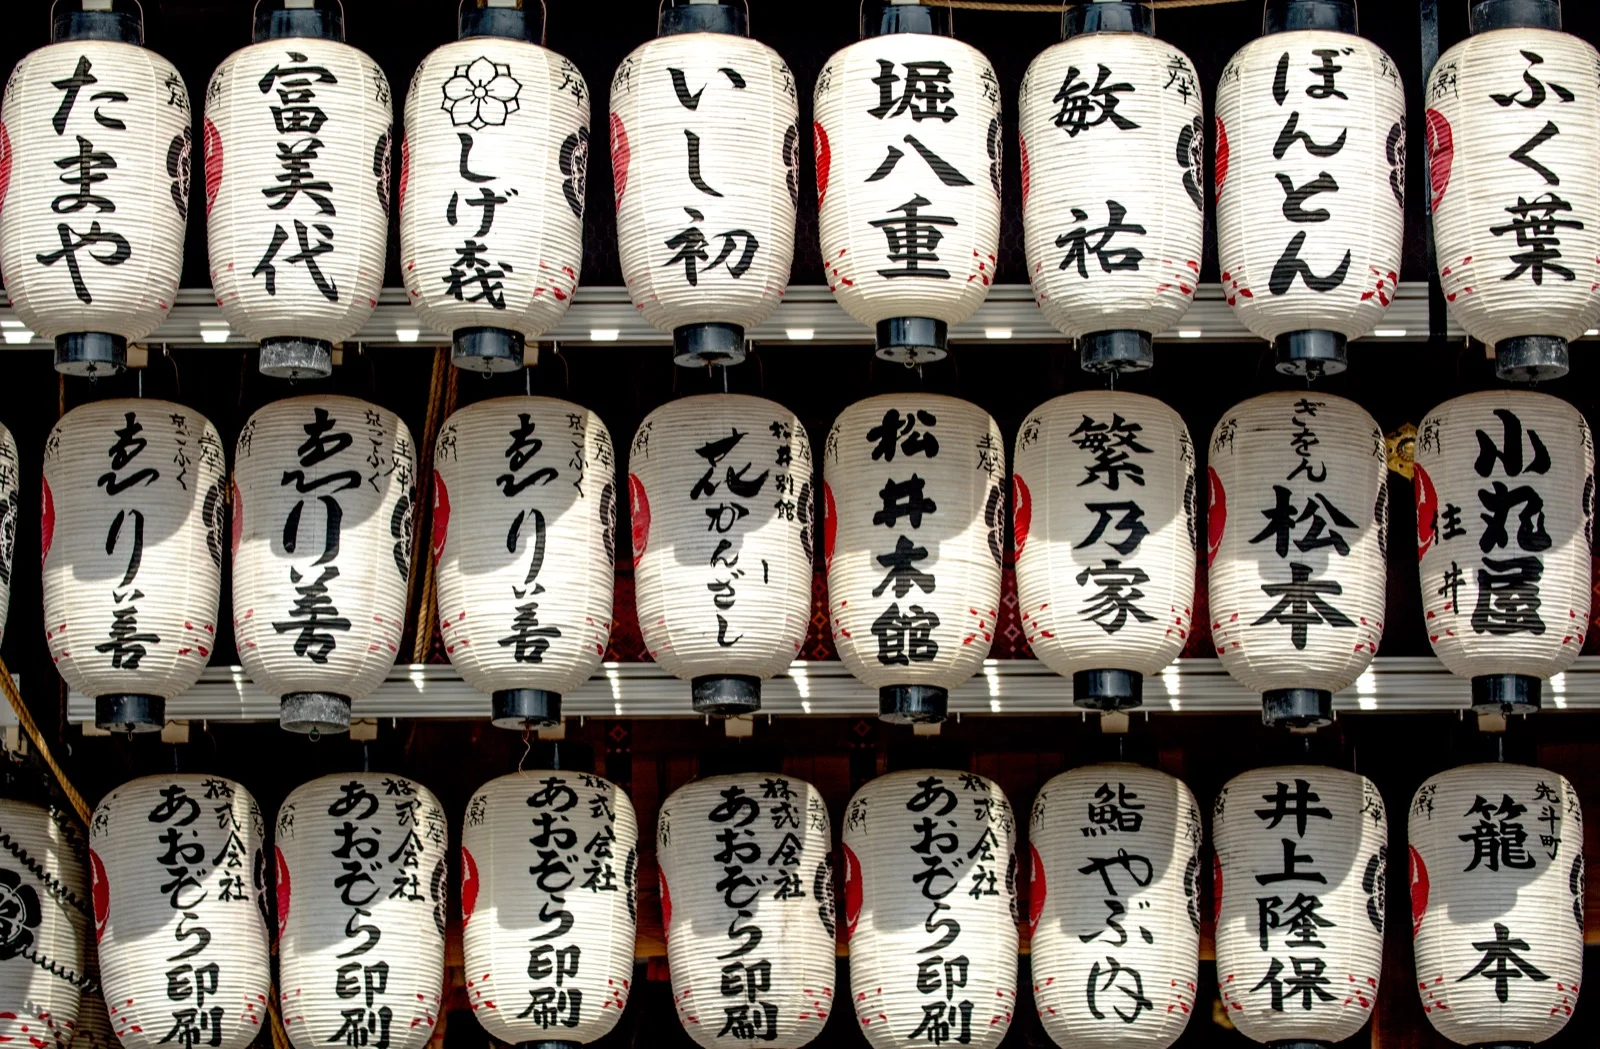 たまや
富美代
しげ森
いし初
堀八重
敏祐
ぼんとん
ふく葉
京ごふく
ゑり善
京ごふく
ゑり善
京ごふく
ゑり善
松井別館
花かんざし
松井本館
繁乃家
ぎをん
松本
小丸屋
住井
株式会社
あおぞら印刷
株式会社
あおぞら印刷
株式会社
あおぞら印刷
株式会社
あおぞら印刷
株式会社
あおぞら印刷
鮨やぶ内
井上隆保
先斗町
籠本